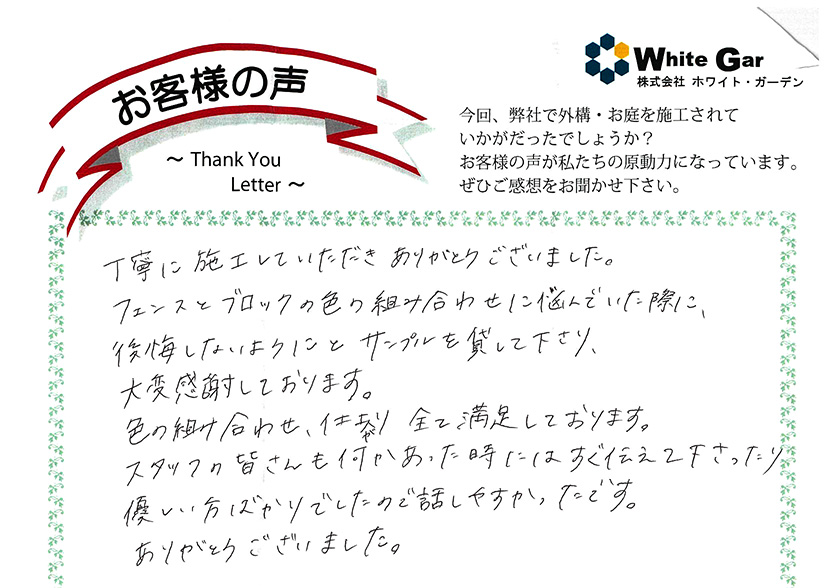 お客様の声
～ Thank You
Letter ～
White Gar
株式会社 ホワイト・ガーデン
今回、弊社で外構・お庭を施工されて
いかがだったでしょうか？
お客様の声が私たちの原動力になっています。
ぜひご感想をお聞かせ下さい。
丁寧に施工していただきありがとうございました。
フェンスとブロックの色の組み合わせに悩んでいた際に、
後悔しないようにと サンプルを貸して下さり、
大変感謝しております。
色の組み合わせ、仕上がり 全て満足しております。
スタッフの皆さんも何かあった時にはすぐ伝えて下さったり
優しい方ばかりでしたので話しやすかったです。
ありがとうございました。